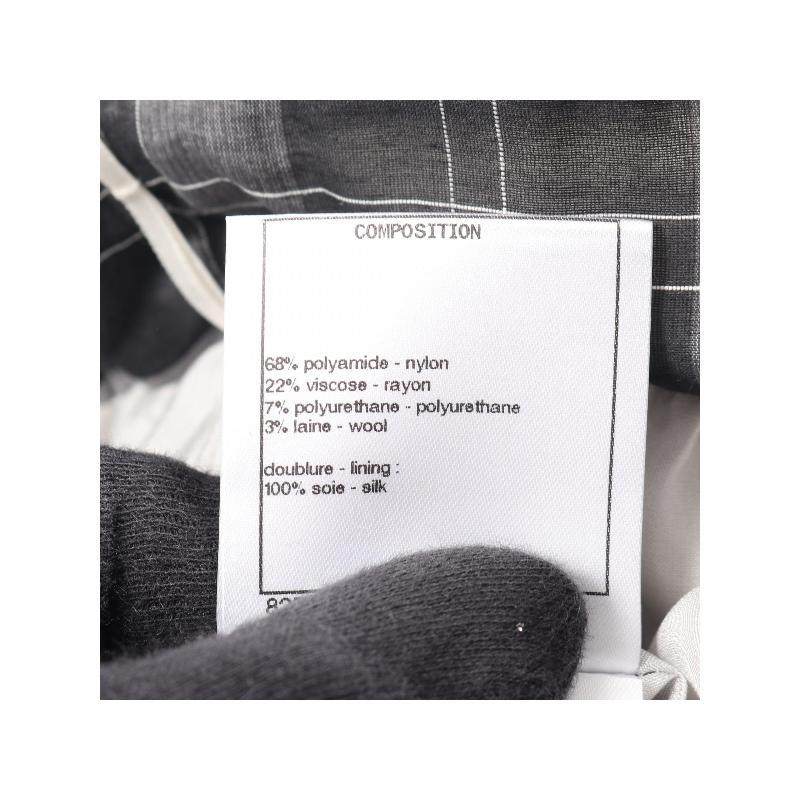 COMPOSITION
68% polyamide - nylon
22% viscose - rayon
7% polyurethane - polyurethane
3% laine - wool
doublure - lining :
100% soie - silk